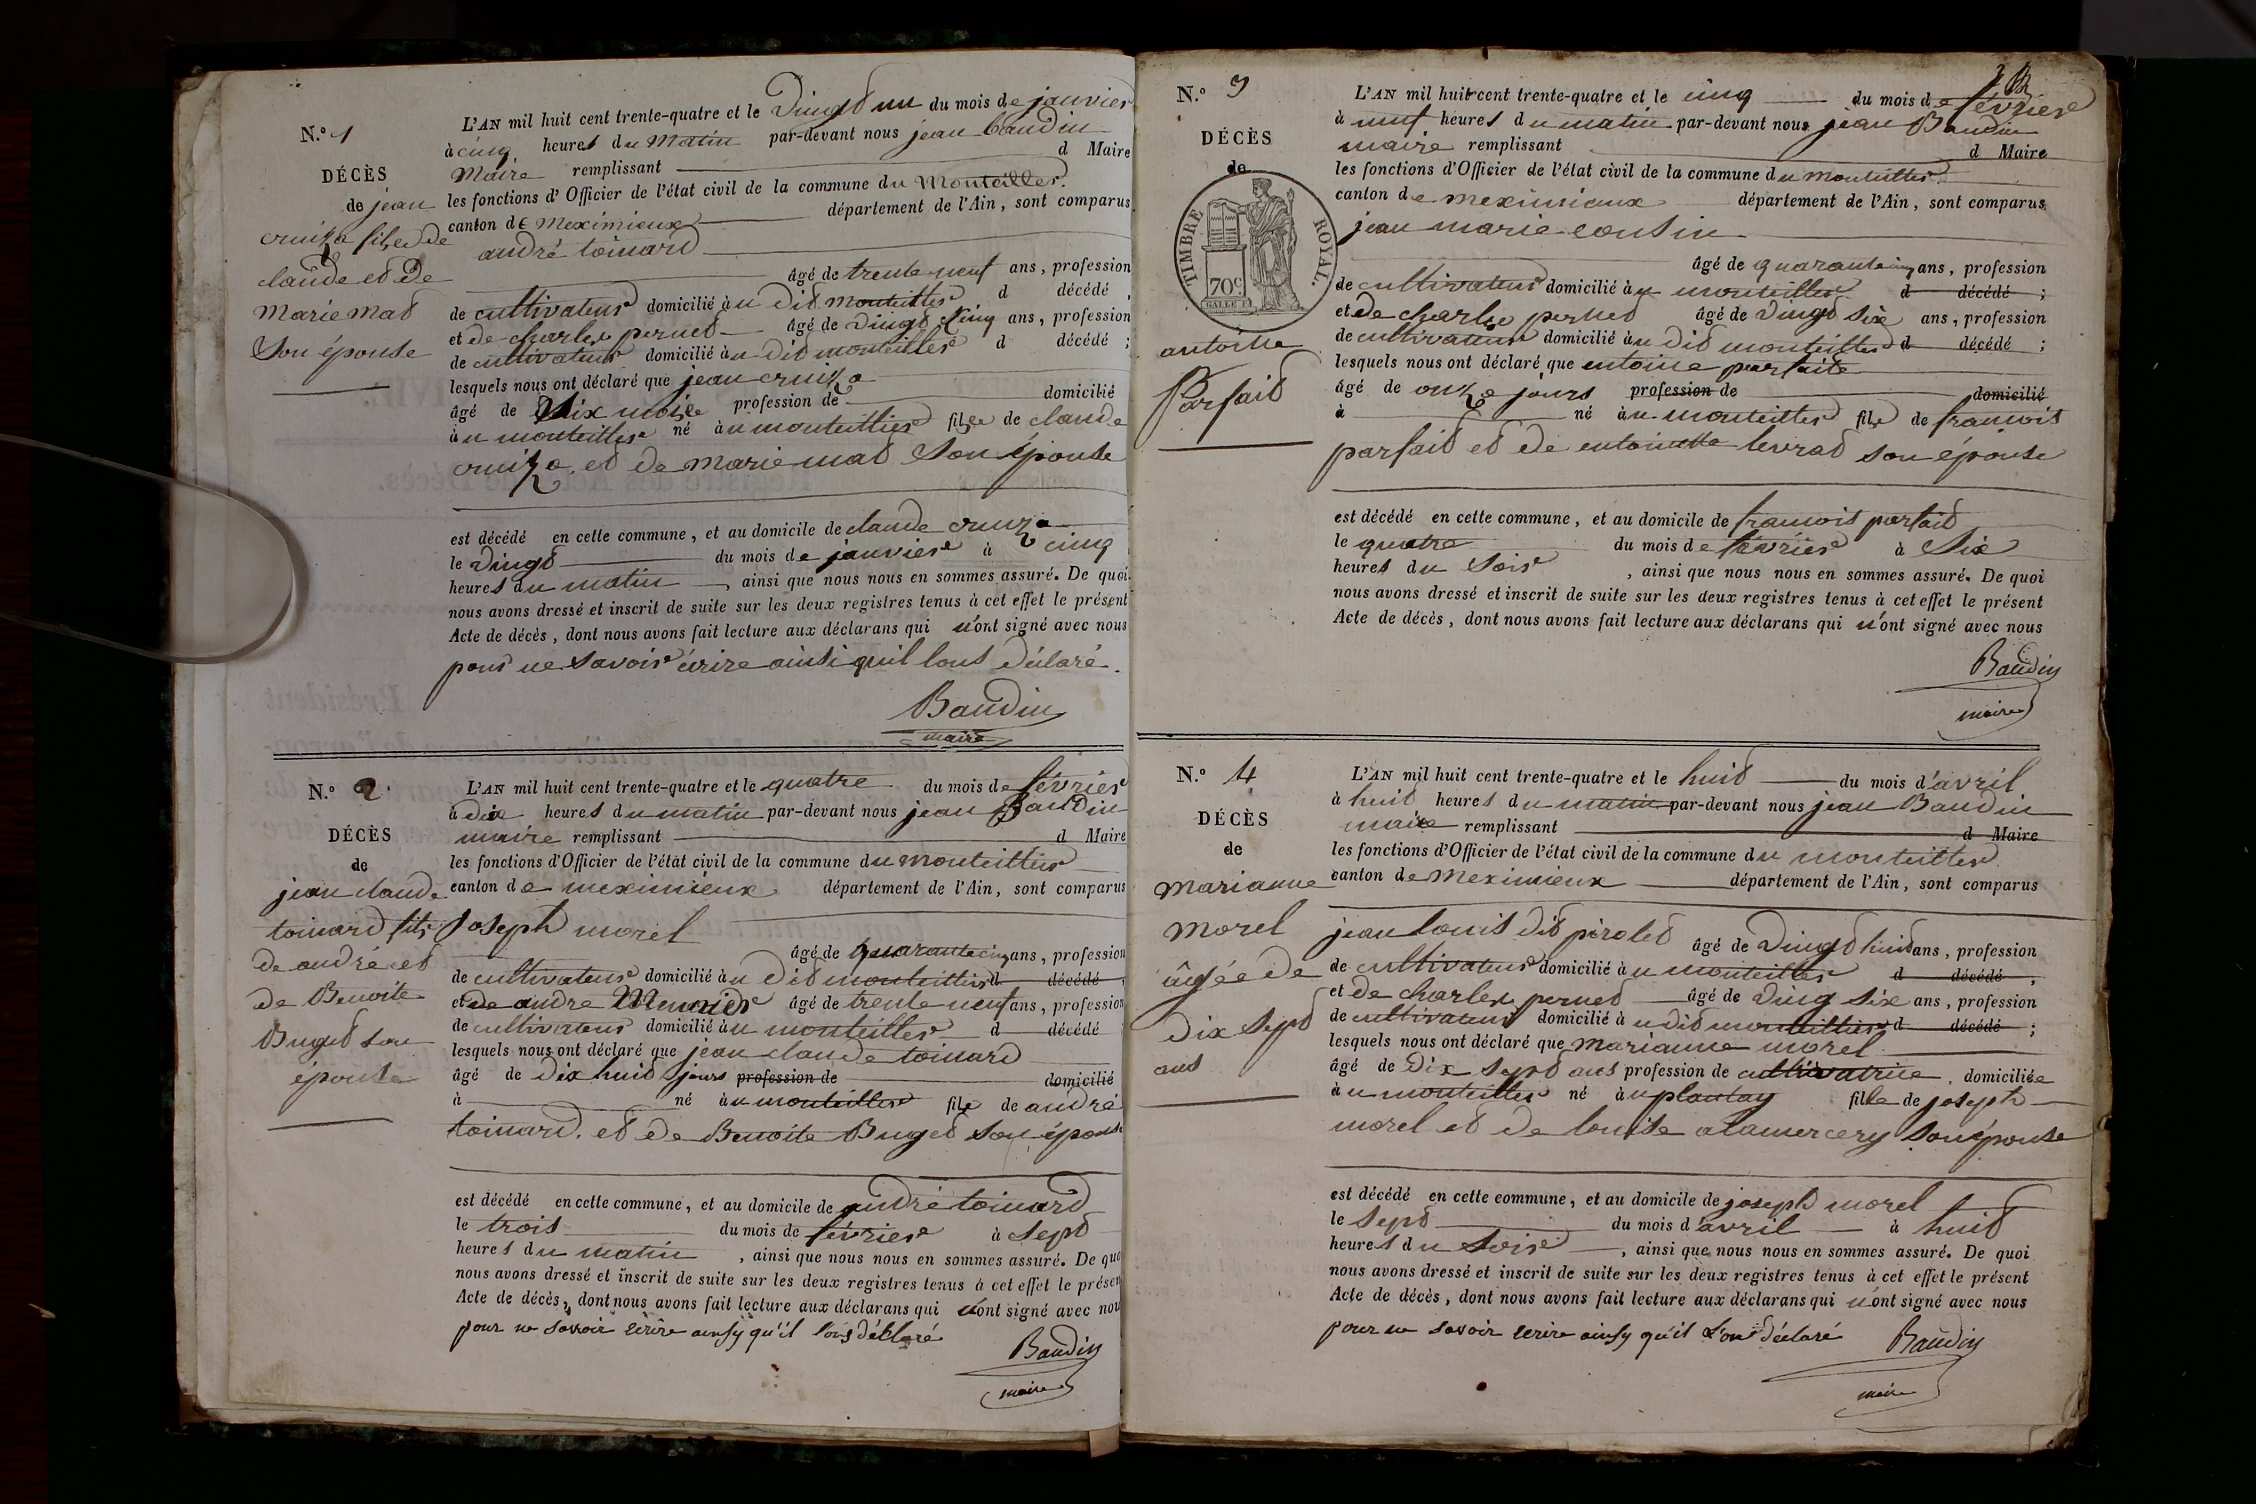 N.º 1
DÉCÈS
de jean
cruiza file de
claude et de
marie mat
son épouse
L'AN mil huit cent trente-quatre et le vingt un du mois de janvier
à cinq heures du matin par-devant nous jean baudin
Maire remplissant d Maire
les fonctions d'Officier de l'état civil de la commune du Monteillier
canton de Meximieux département de l'Ain, sont comparus
andré toinard
âgé de trente neuf ans, profession
de cultivateur domicilié au dit monteillier d décédé,
et de charle pernet âgé de vingt cinq ans, profession
de cultivateur domicilié au dit monteillier d décédé;
lesquels nous ont déclaré que jean cruiza
âgé de six mois profession de domicilié
au monteillier né au monteillier file de claude
cruiza et de marie mat son épouse
est décédé en cette commune, et au domicile de claude cruiza
le vingt du mois de janvier à cinq
heures du matin, ainsi que nous nous en sommes assuré. De quoi
nous avons dressé et inscrit de suite sur les deux registres tenus à cet effet le présent
Acte de décès, dont nous avons fait lecture aux déclarans qui n'ont signé avec nous
pour ne savoir écrire ainsi quil lont déclaré.
Baudin
maire
N.º 2
DÉCÈS
de
jean claude
toinard fils
de andré et
de Benoite
Buget son
épouse
L'AN mil huit cent trente-quatre et le quatre du mois de février
à dix heures du matin par-devant nous jean Baudin
maire remplissant d Maire
les fonctions d'Officier de l'état civil de la commune du monteillier
canton de meximieux département de l'Ain, sont comparus
joseph morel
âgé de quarante cinq ans, profession
de cultivateur domicilié au dit monteillier d décédé,
et de andre Meunier âgé de trente neuf ans, profession
de cultivateur domicilié au monteillier d décédé
lesquels nous ont déclaré que jean claude toinard
âgé de dix huit jours profession de domicilié
à né au monteillier file de andré
toinard et de Benoite Buget son épouse
est décédé en cette commune, et au domicile de andré toinard
le trois du mois de février à sept
heures du matin, ainsi que nous nous en sommes assuré. De quo
nous avons dressé et inscrit de suite sur les deux registres tenus à cet effet le présen
Acte de décès, dont nous avons fait lecture aux déclarans qui n'ont signé avec nou
pour ne savoir écrire ainsy qu'il l'ons déclaré
Baudin
maire
N.º 3
DÉCÈS
de
TIMBRE ROYAL
70c
antoine
Parfait
L'AN mil huit cent trente-quatre et le cinq du mois de février
à neuf heures du matin par-devant nous jean Baudin
maire remplissant d Maire
les fonctions d'Officier de l'état civil de la commune du monteillier
canton de meximieux département de l'Ain, sont comparus
jean marie cousin
âgé de quarante cinq ans, profession
de cultivateur domicilié au monteillier d décédé;
et de charle pernet âgé de vingt six ans, profession
de cultivateur domicilié au dit monteillier d décédé;
lesquels nous ont déclaré que entoine parfaite
âgé de onze jours profession de domicilié
à né au monteillier file de francois
parfait et de entoinette levrat son épouse
est décédé en cette commune, et au domicile de francois parfait
le quatre du mois de février à six
heures du soir, ainsi que nous nous en sommes assuré. De quoi
nous avons dressé et inscrit de suite sur les deux registres tenus à cet effet le présent
Acte de décès, dont nous avons fait lecture aux déclarans qui n'ont signé avec nous
Baudin
maire
N.º 4
DÉCÈS
de
Marianne
morel
âgée de
dix sept
ans
L'AN mil huit cent trente-quatre et le huit du mois d'avril
à huit heures du matin par-devant nous jean Baudin
maire remplissant d Maire
les fonctions d'Officier de l'état civil de la commune du monteillier
canton de Meximieux département de l'Ain, sont comparus
jean louis dit pirolet âgé de vingt huit ans, profession
de cultivateur domicilié au monteillier d décédé,
et de charle pernet âgé de ving six ans, profession
de cultivateur domicilié au dit monteillier d décédé;
lesquels nous ont déclaré que marianne morel
âgé de dix sept ans profession de cultivatrice, domiciliée
au monteillier né au plantay fille de joseph
morel et de louise alamercery son épouse
est décédé en cette commune, et au domicile de joseph morel
le sept du mois d'avril à huit
heures du soir, ainsi que nous nous en sommes assuré. De quoi
nous avons dressé et inscrit de suite sur les deux registres tenus à cet effet le présent
Acte de décès, dont nous avons fait lecture aux déclarans qui n'ont signé avec nous
pour ne savoir écrire ainsy qu'il l'ont déclaré
Baudin
maire